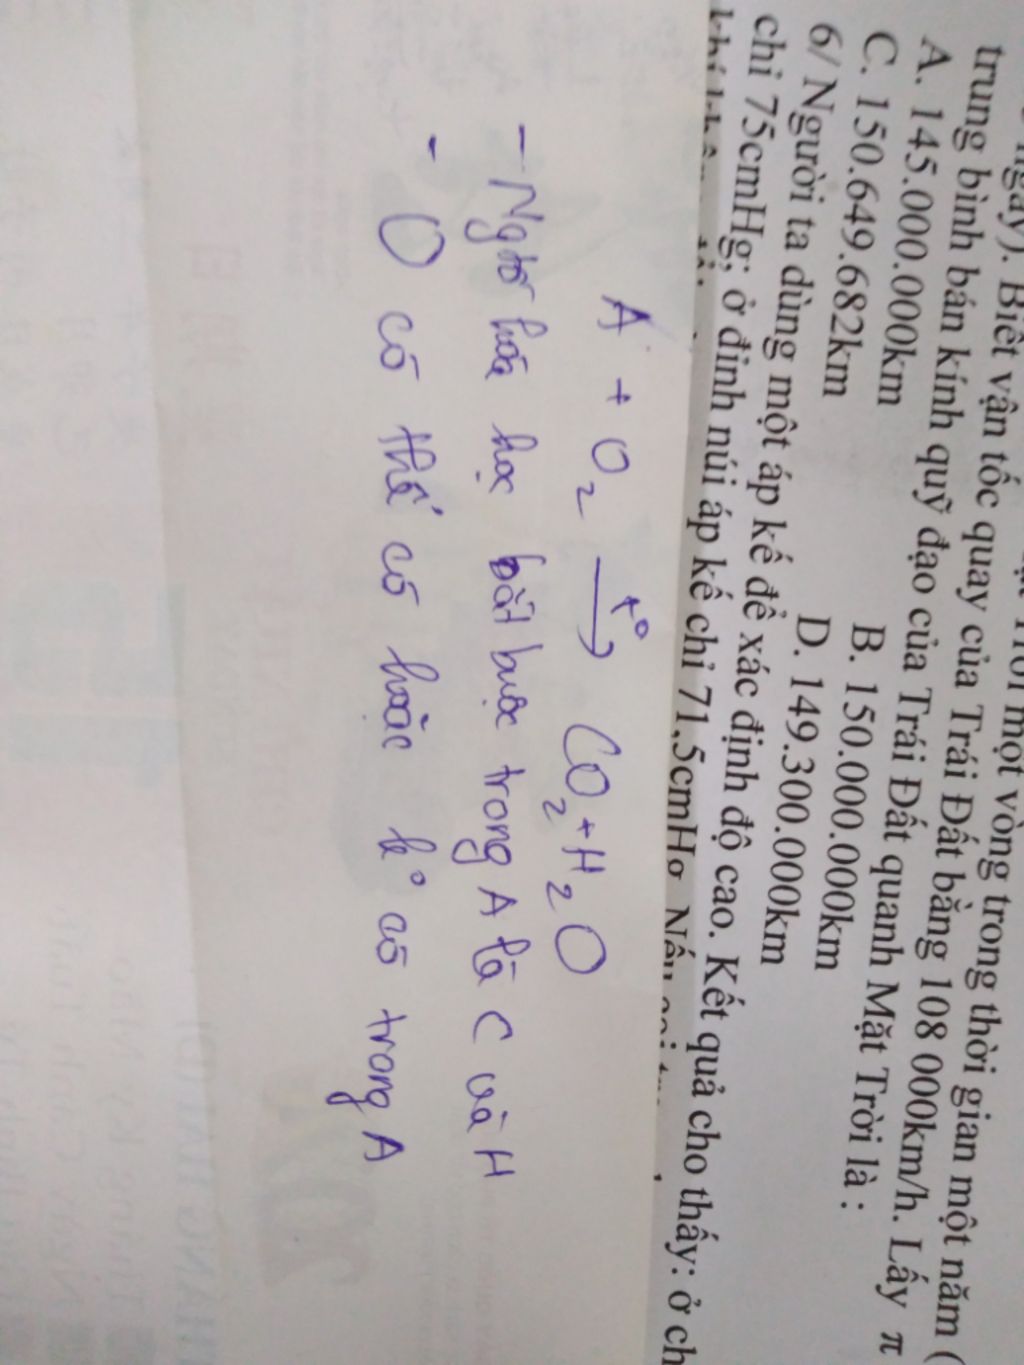 ngày). Biết vận tốc quay của Trái Đất bằng 108 000km/h. Lấy π
một vòng trong thời gian một năm (
trung bình bán kính quỹ đạo của Trái Đất quanh Mặt Trời là :
A. 145.000.000km B. 150.000.000km
C. 150.649.682km D. 149.300.000km
6/ Người ta dùng một áp kế để xác định độ cao. Kết quả cho thấy: ở ch
chỉ 75cmHg; ở đỉnh núi áp kế chỉ 71,5cmHg. Nếu
A + O2 —t°→ CO2 + H2O
- Ngtố hóa học bắt buộc trong A là C và H
- O có thể có hoặc k° có trong A